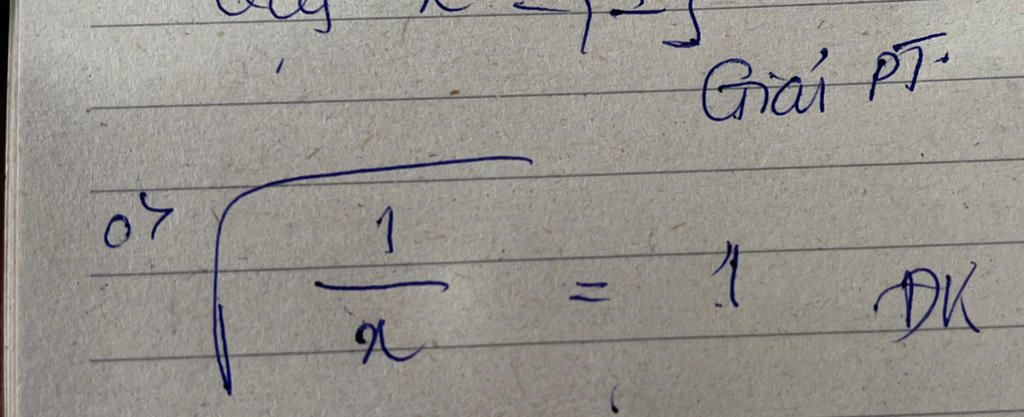 Giải PT.
0>
1
x
= 1 ĐK